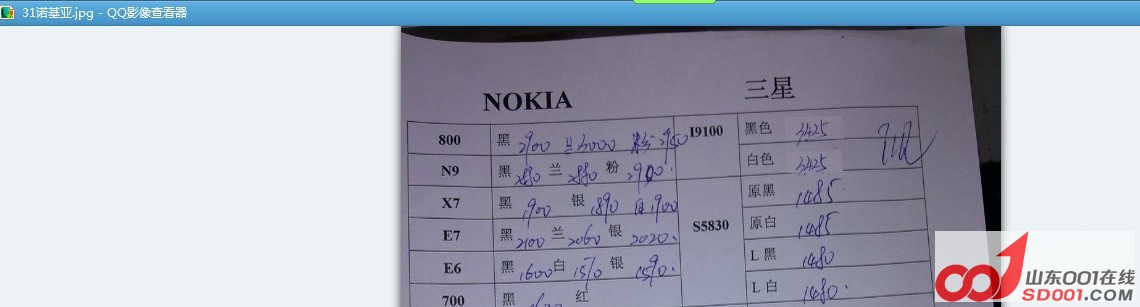 31诺基亚.jpg - QQ影像查看器
NOKIA 三星
800 黑 2900 兰 3000 粉 2950 I9100 黑色 3425
N9 黑 兰 粉 白色 3425
X7 黑 1900 银 1890 白 1900 原黑 1485
E7 黑 2100 兰 2060 银 2020. S5830 原白 1485
E6 黑 1600 白 1570 银 1590. L黑 1480
700 黑 红 L白 1480.
山东001在线
SD001.COM